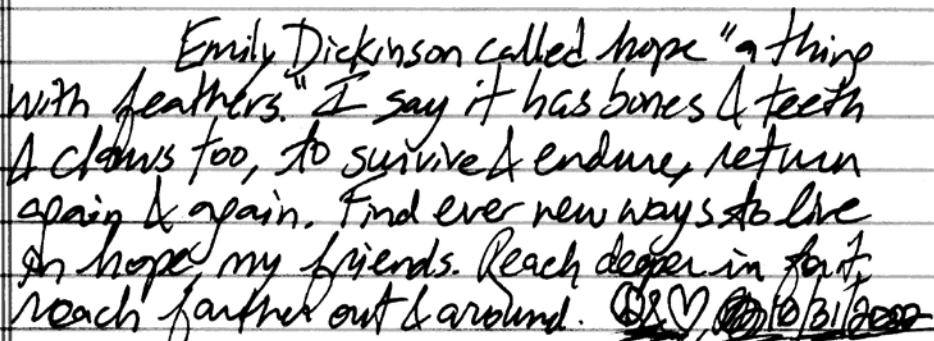 Emily Dickinson called hope "a thing
with feathers." I say it has bones & teeth
& claws too, to survive & endure, return
again & again. Find ever new ways to live
in hope, my friends. Reach deeper in for it,
reach farther out & around. & ♡, 10/31/2022